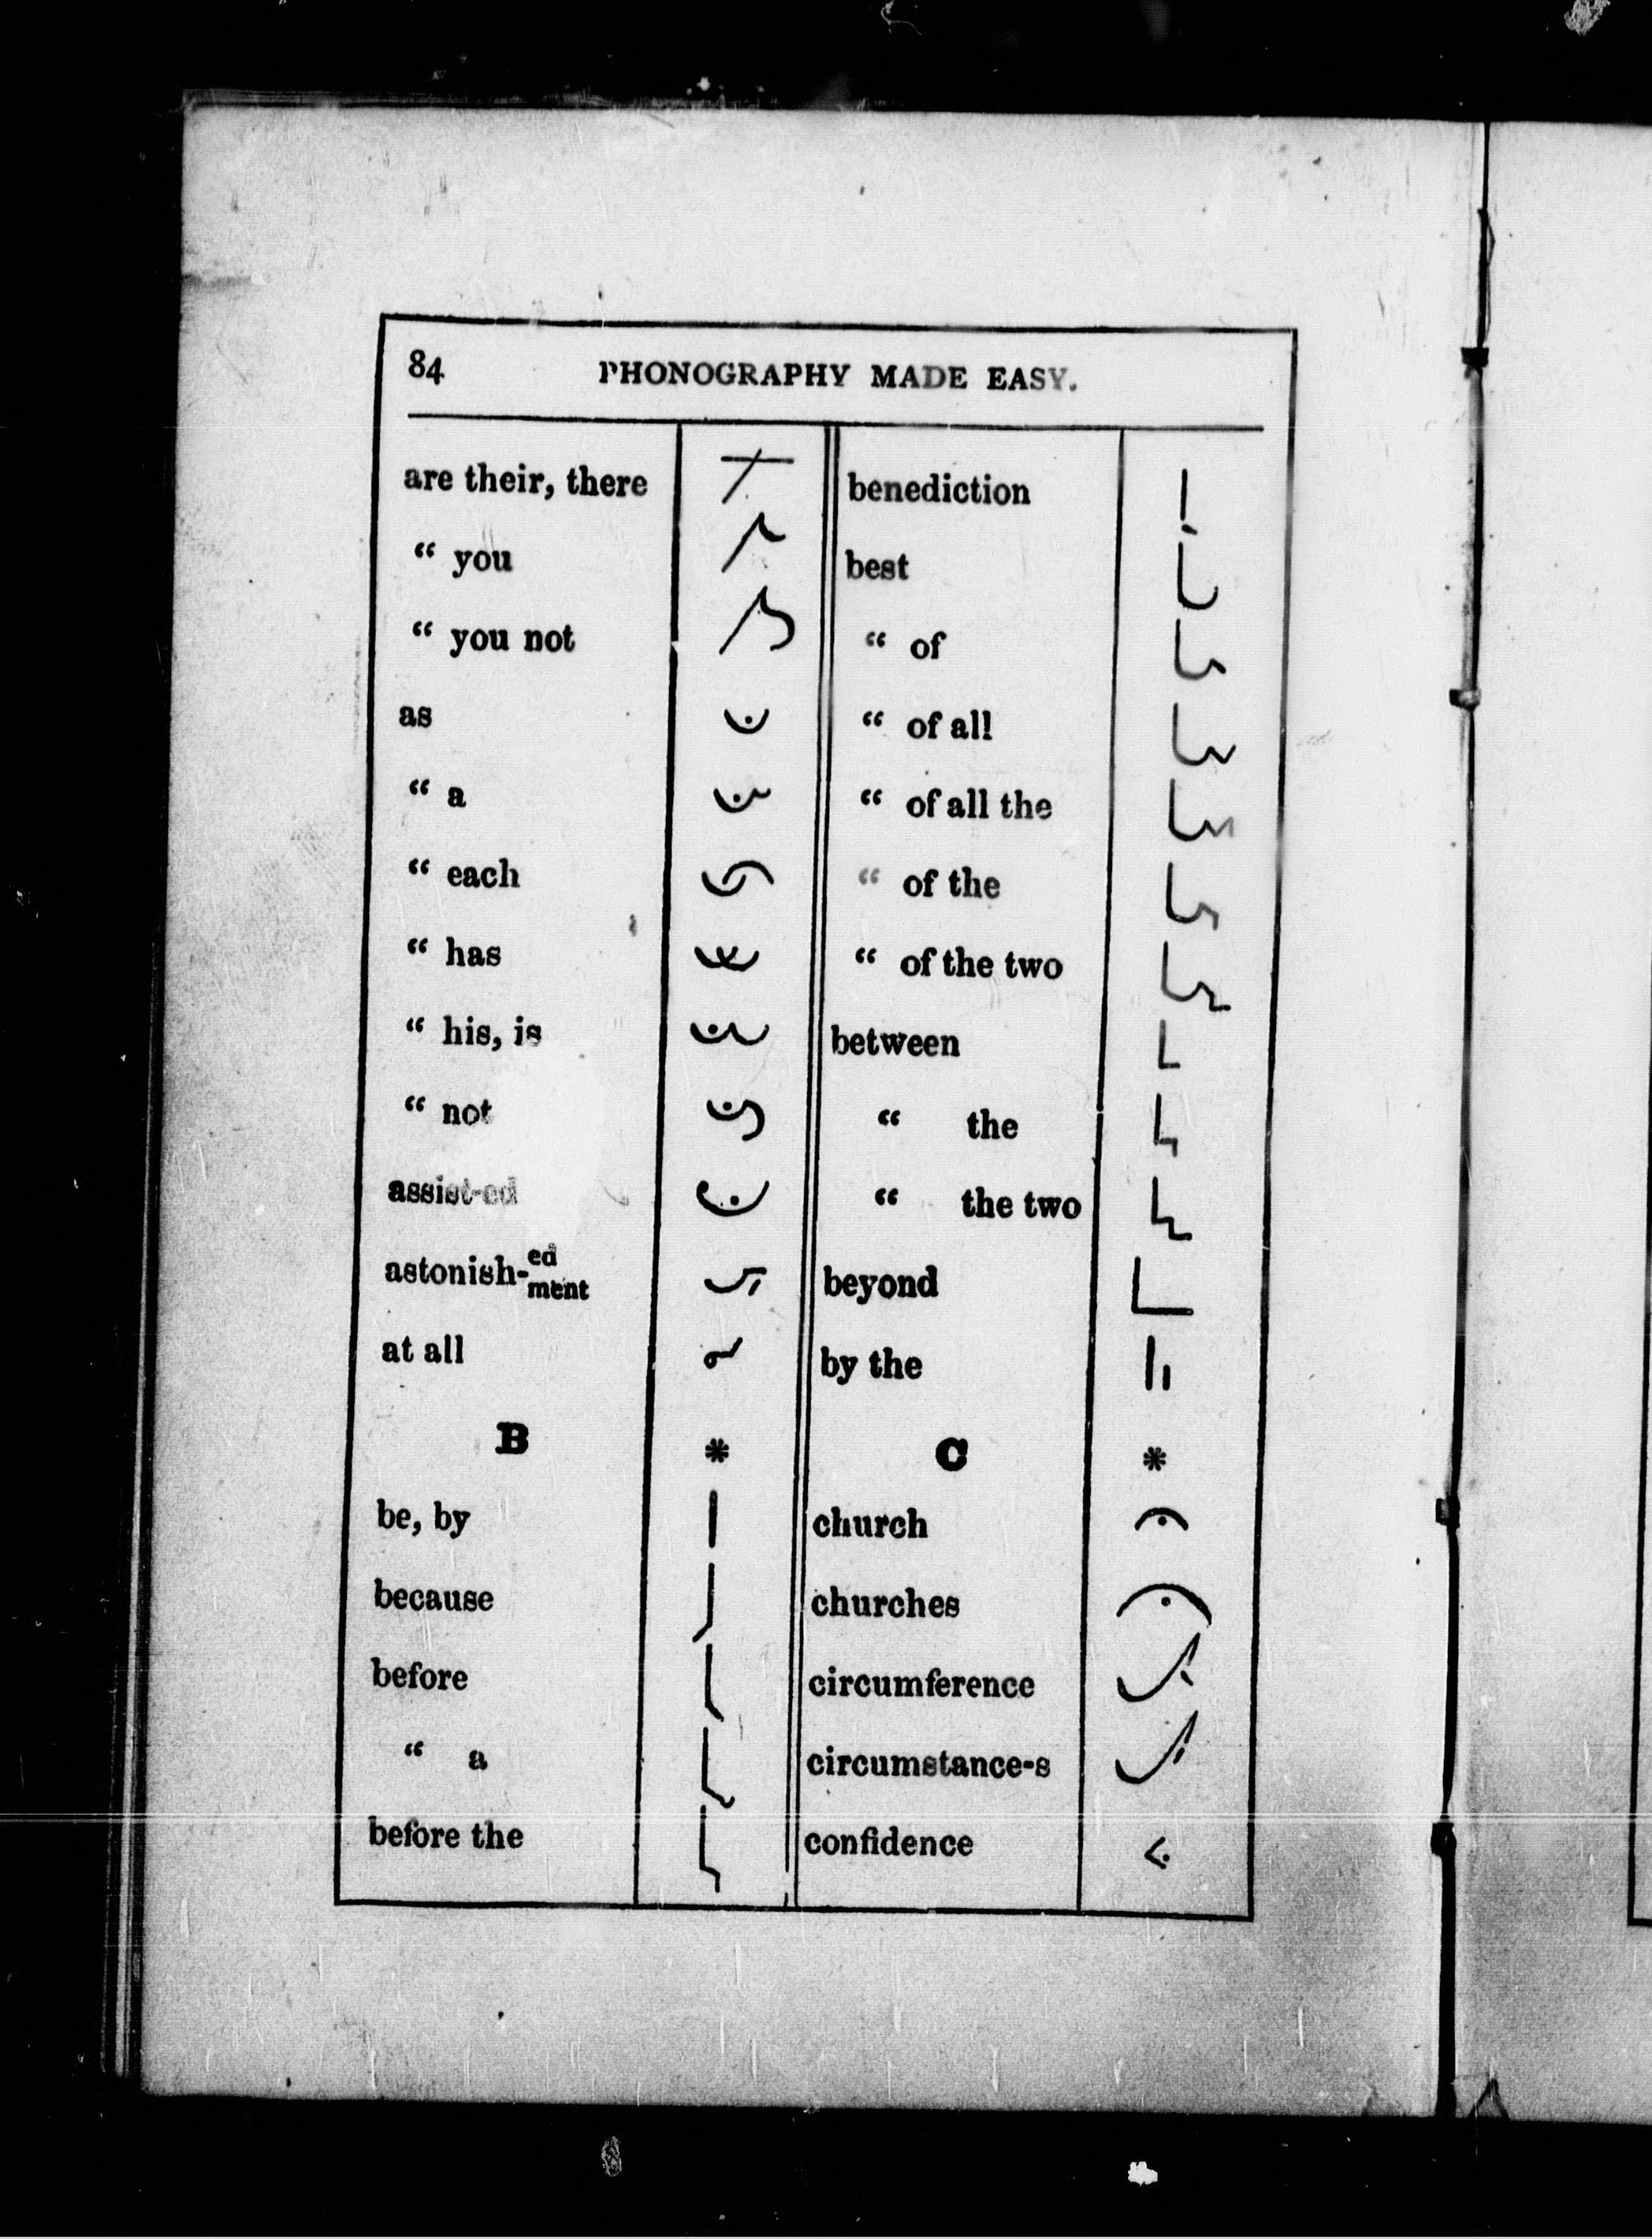 84 PHONOGRAPHY MADE EASY.
are their, there
“ you
“ you not
as
“ a
“ each
“ has
“ his, is
“ not
assist-ed
astonish-ed ment
at all
B *
be, by
because
before
“ a
before the
benediction
best
“ of
“ of all
“ of all the
“ of the
“ of the two
between
“ the
“ the two
beyond
by the
C *
church
churches
circumference
circumstance-s
confidence